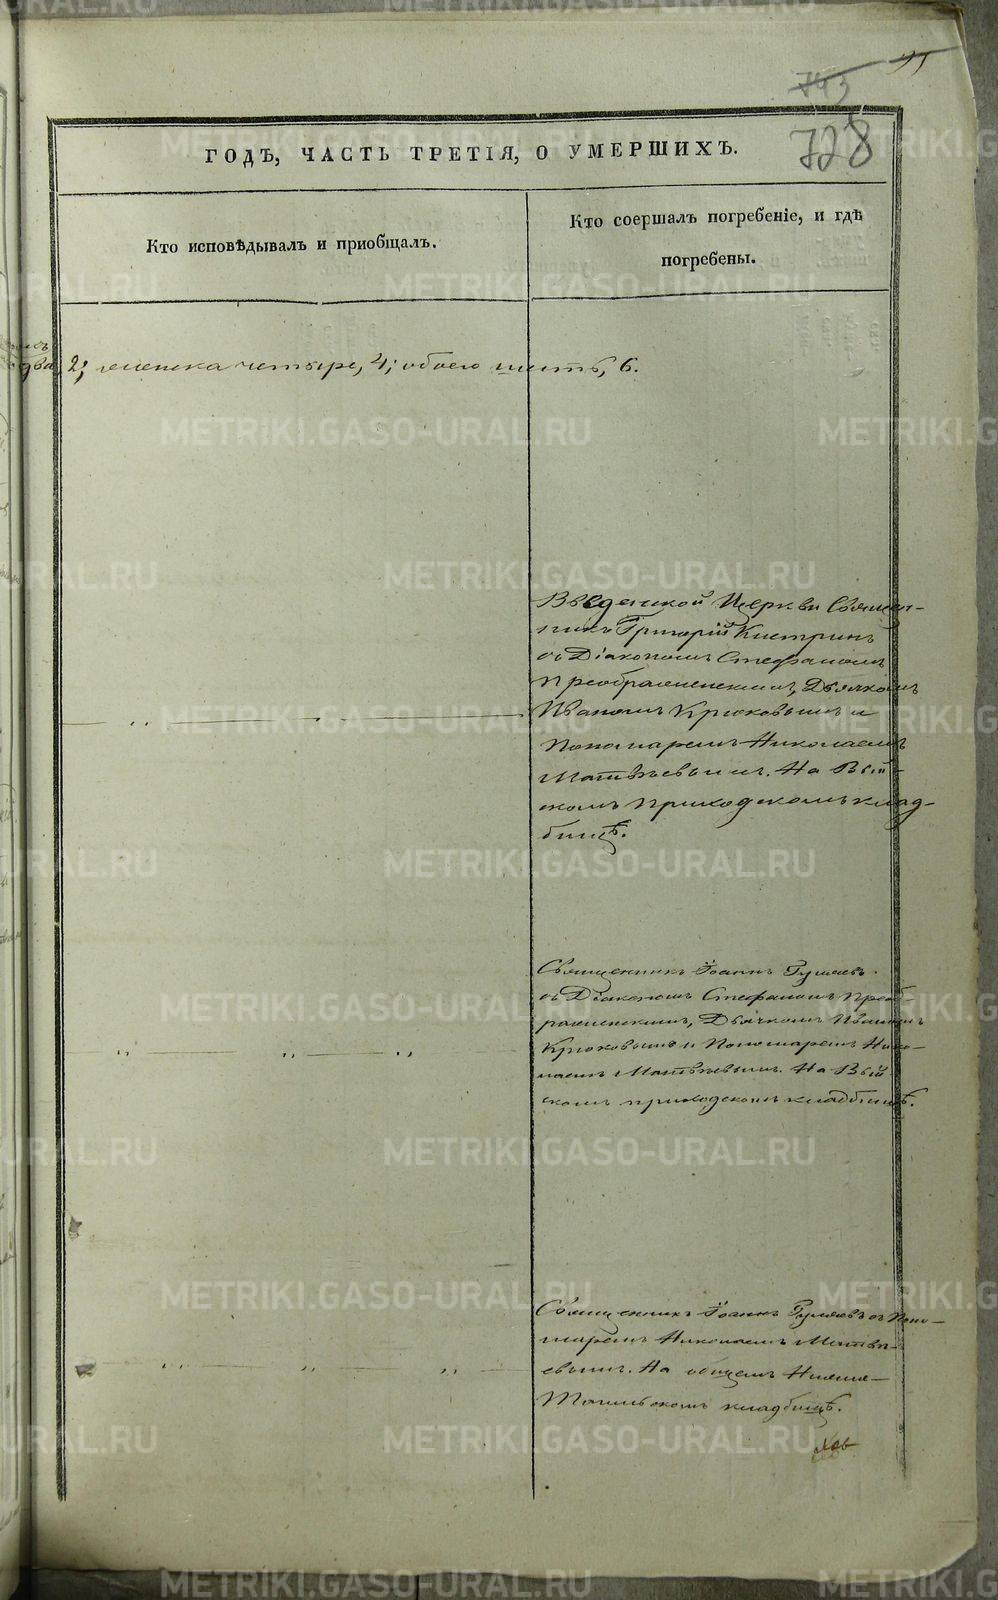 95
743
728
ГОДЪ, ЧАСТЬ ТРЕТІЯ, О УМЕРШИХЪ.
Кто исповѣдывалъ и пріобщалъ.
Кто соершалъ погребеніе, и гдѣ
погребены.
два, 2; женска четыре, 4; обоего шесть, 6.
Введенской Церкви Священ-
никъ Григорій
съ Діакономъ Стефаномъ
Преображенскимъ, Дьячкомъ
Иваномъ Крюковымъ и
Пономаремъ Николаемъ
Матвѣевымъ. На Вый-
скомъ приходскомъ клад-
бищѣ.
Священникъ Іоаннъ Гуляевъ
съ Діакономъ Стефаномъ Преоб-
раженскимъ, Дьячкомъ Иваномъ
Крюковымъ и Пономаремъ Нико-
лаемъ Матвѣевымъ. На Вый-
скомъ приходскомъ кладбищѣ.
Священникъ Іоаннъ Гуляевъ съ Поно-
маремъ Николаемъ Матвѣ-
евымъ. На общемъ Нижне-
Тагильскомъ кладбищѣ.
METRIKI.GASO-URAL.RU